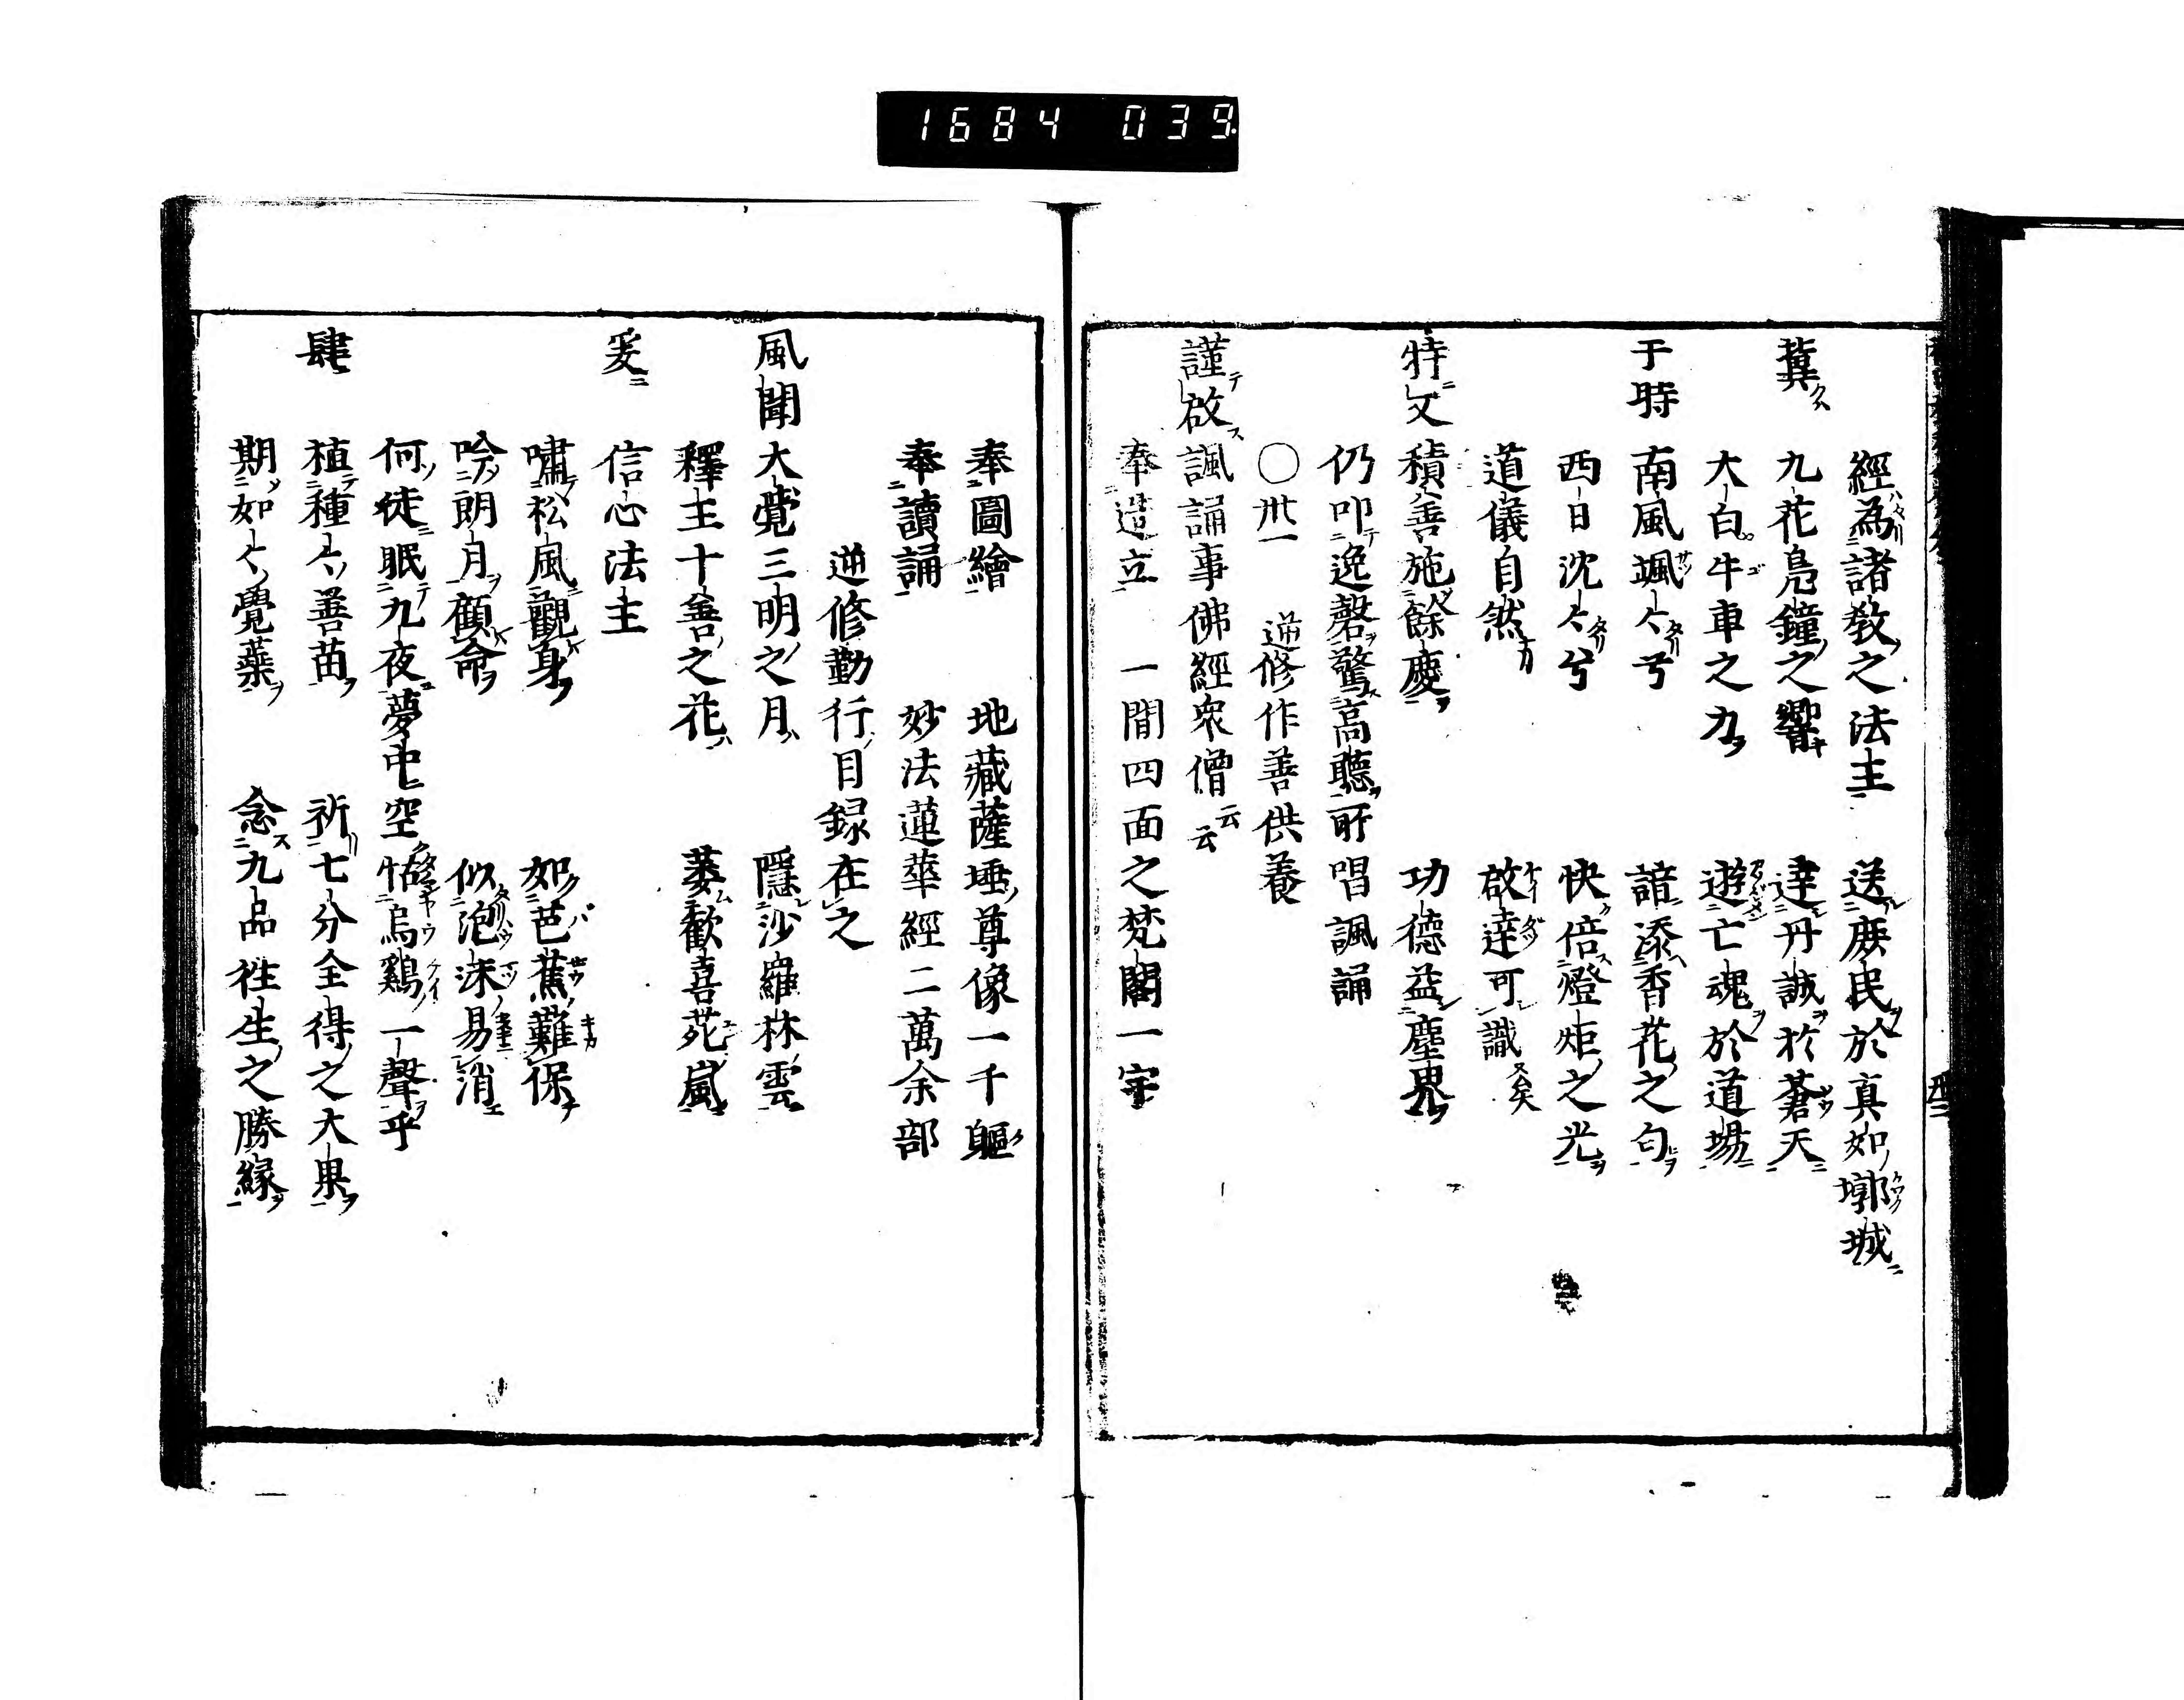 1684 039
經為諸教之法主 送庶民於真如墎城
冀 九花鳧鐘之響 達丹誠於蒼天
大白牛車之力 遊亡魂於道場
于時 南風颯々兮 諳添香花之匂
西日沈々兮 快倍燈炬之光
道儀自然 啟達可識矣
特又 積善施餘慶 功德益塵界
仍叩逸磬驚高聽所唱諷誦
〇卅一 逆修作善供養
謹啟諷誦事佛經衆僧云云
奉造立 一間四面之梵閣一宇
奉圖繪 地藏薩埵尊像一千軀
奉讀誦 妙法蓮華經二萬余部
逆修勤行目録在之
風聞大覺三明之月 隱沙羅林雲
釋王十善之花 萎歡喜苑嵐
爰 信心法主
嘯松風觀身 如芭蕉難保
吟朗月顧命 似泡沫易消
何徒眠九夜夢中空恊烏鷄一聲乎
肆 植種々善苗 祈七分全得之大果
期如々覺蘂 念九品徃生之勝緣